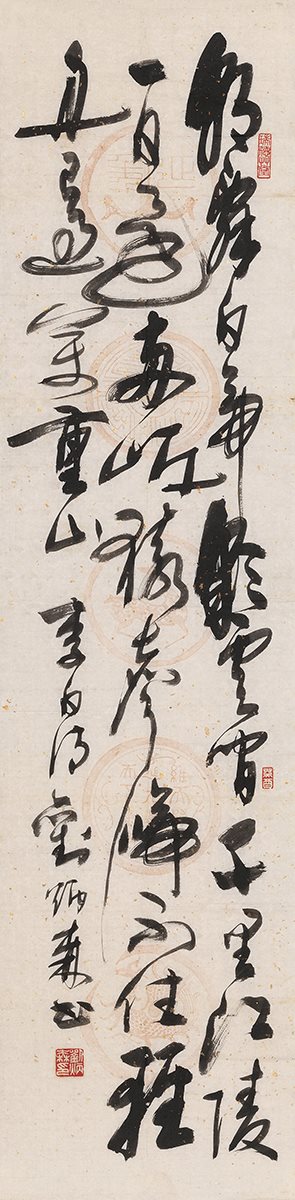 朝辭白帝彩雲間千里江陵
一日還兩岸猿聲啼不住輕
舟已過萬重山 李白詩 劉炳森書
劉炳森印